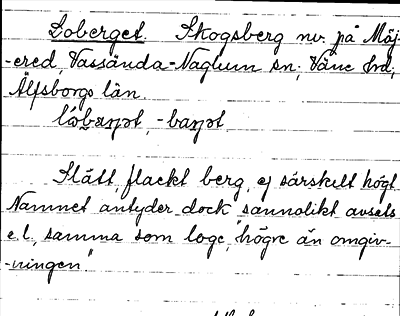 Loberget. Skogsberg nv. på Möj-
-ered, Vassända-Naglum sn; Väne hd;
Älfsborgs län.
lóbærjət, -bærjət
Slätt, flackt berg, ej särskilt högt.
Namnet antyder dock sannolikt avsats
e.l., samma som loge, "högre än omgiv-
-ningen"